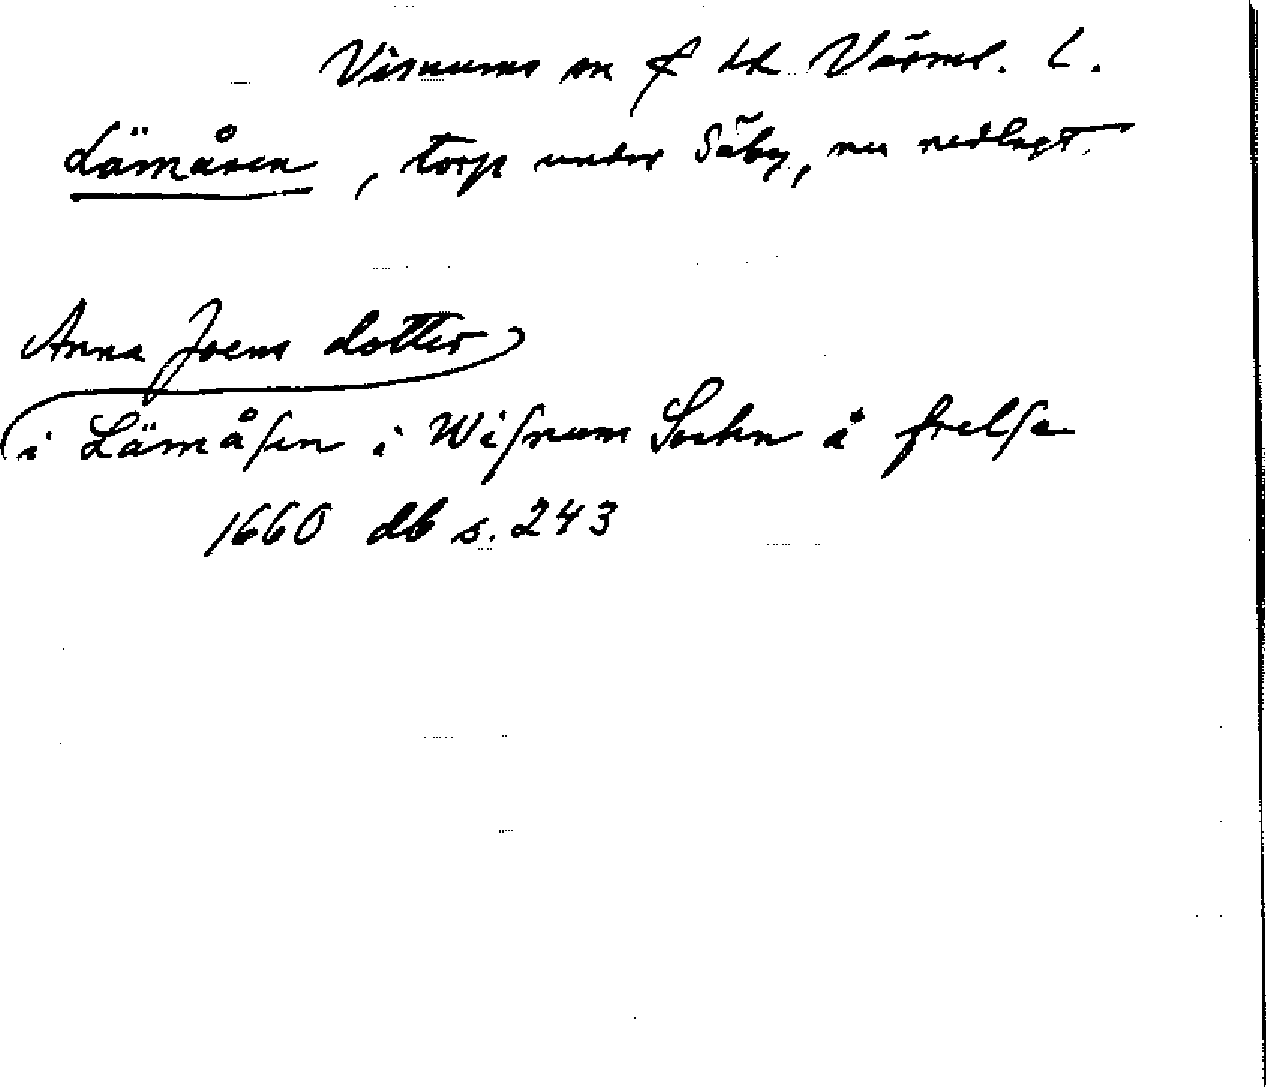 Visnums sn f hd Värml. L.
Lämåsen, torp under Säby, nu nedlagt.
Anna Joens dotter
i Lämåsen i Wisnum Sochn å frelse
1660 db s. 243